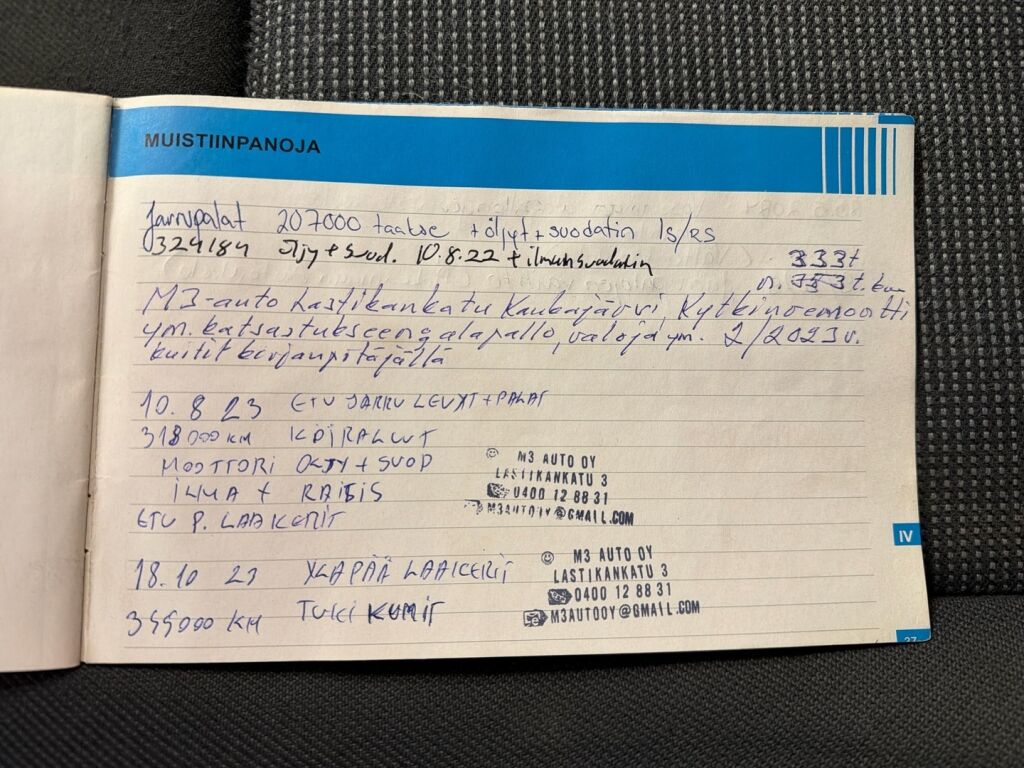 MUISTIINPANOJA
Jarrupalat 207000 taakse + öljyt + suodatin IS/RS
324184 öljy + suod. 10.8.22 + ilmansuodatin
333t
n. t. km
M3-auto Lastikankatu Kaukajärvi, Kytkinremontti
ym. katsastukseen, alapallo, valoja ym. 2/2023 v.
kuitit kirjanpitäjällä
10. 8 23 ETU JARRU LEVYT + PALAT
318000 KM KOIRALUUT
MOOTTORI ÖLJY + SUOD
ILMA + RAITIS
ETU P. LAAKERIT
M3 AUTO OY
LASTIKANKATU 3
0400 12 88 31
M3AUTOOY@GMAIL.COM
18.10 23 YLÄPÄÄ LAAKERIT
TUKI KUMIT
KM
M3 AUTO OY
LASTIKANKATU 3
0400 12 88 31
M3AUTOOY@GMAIL.COM
IV
37